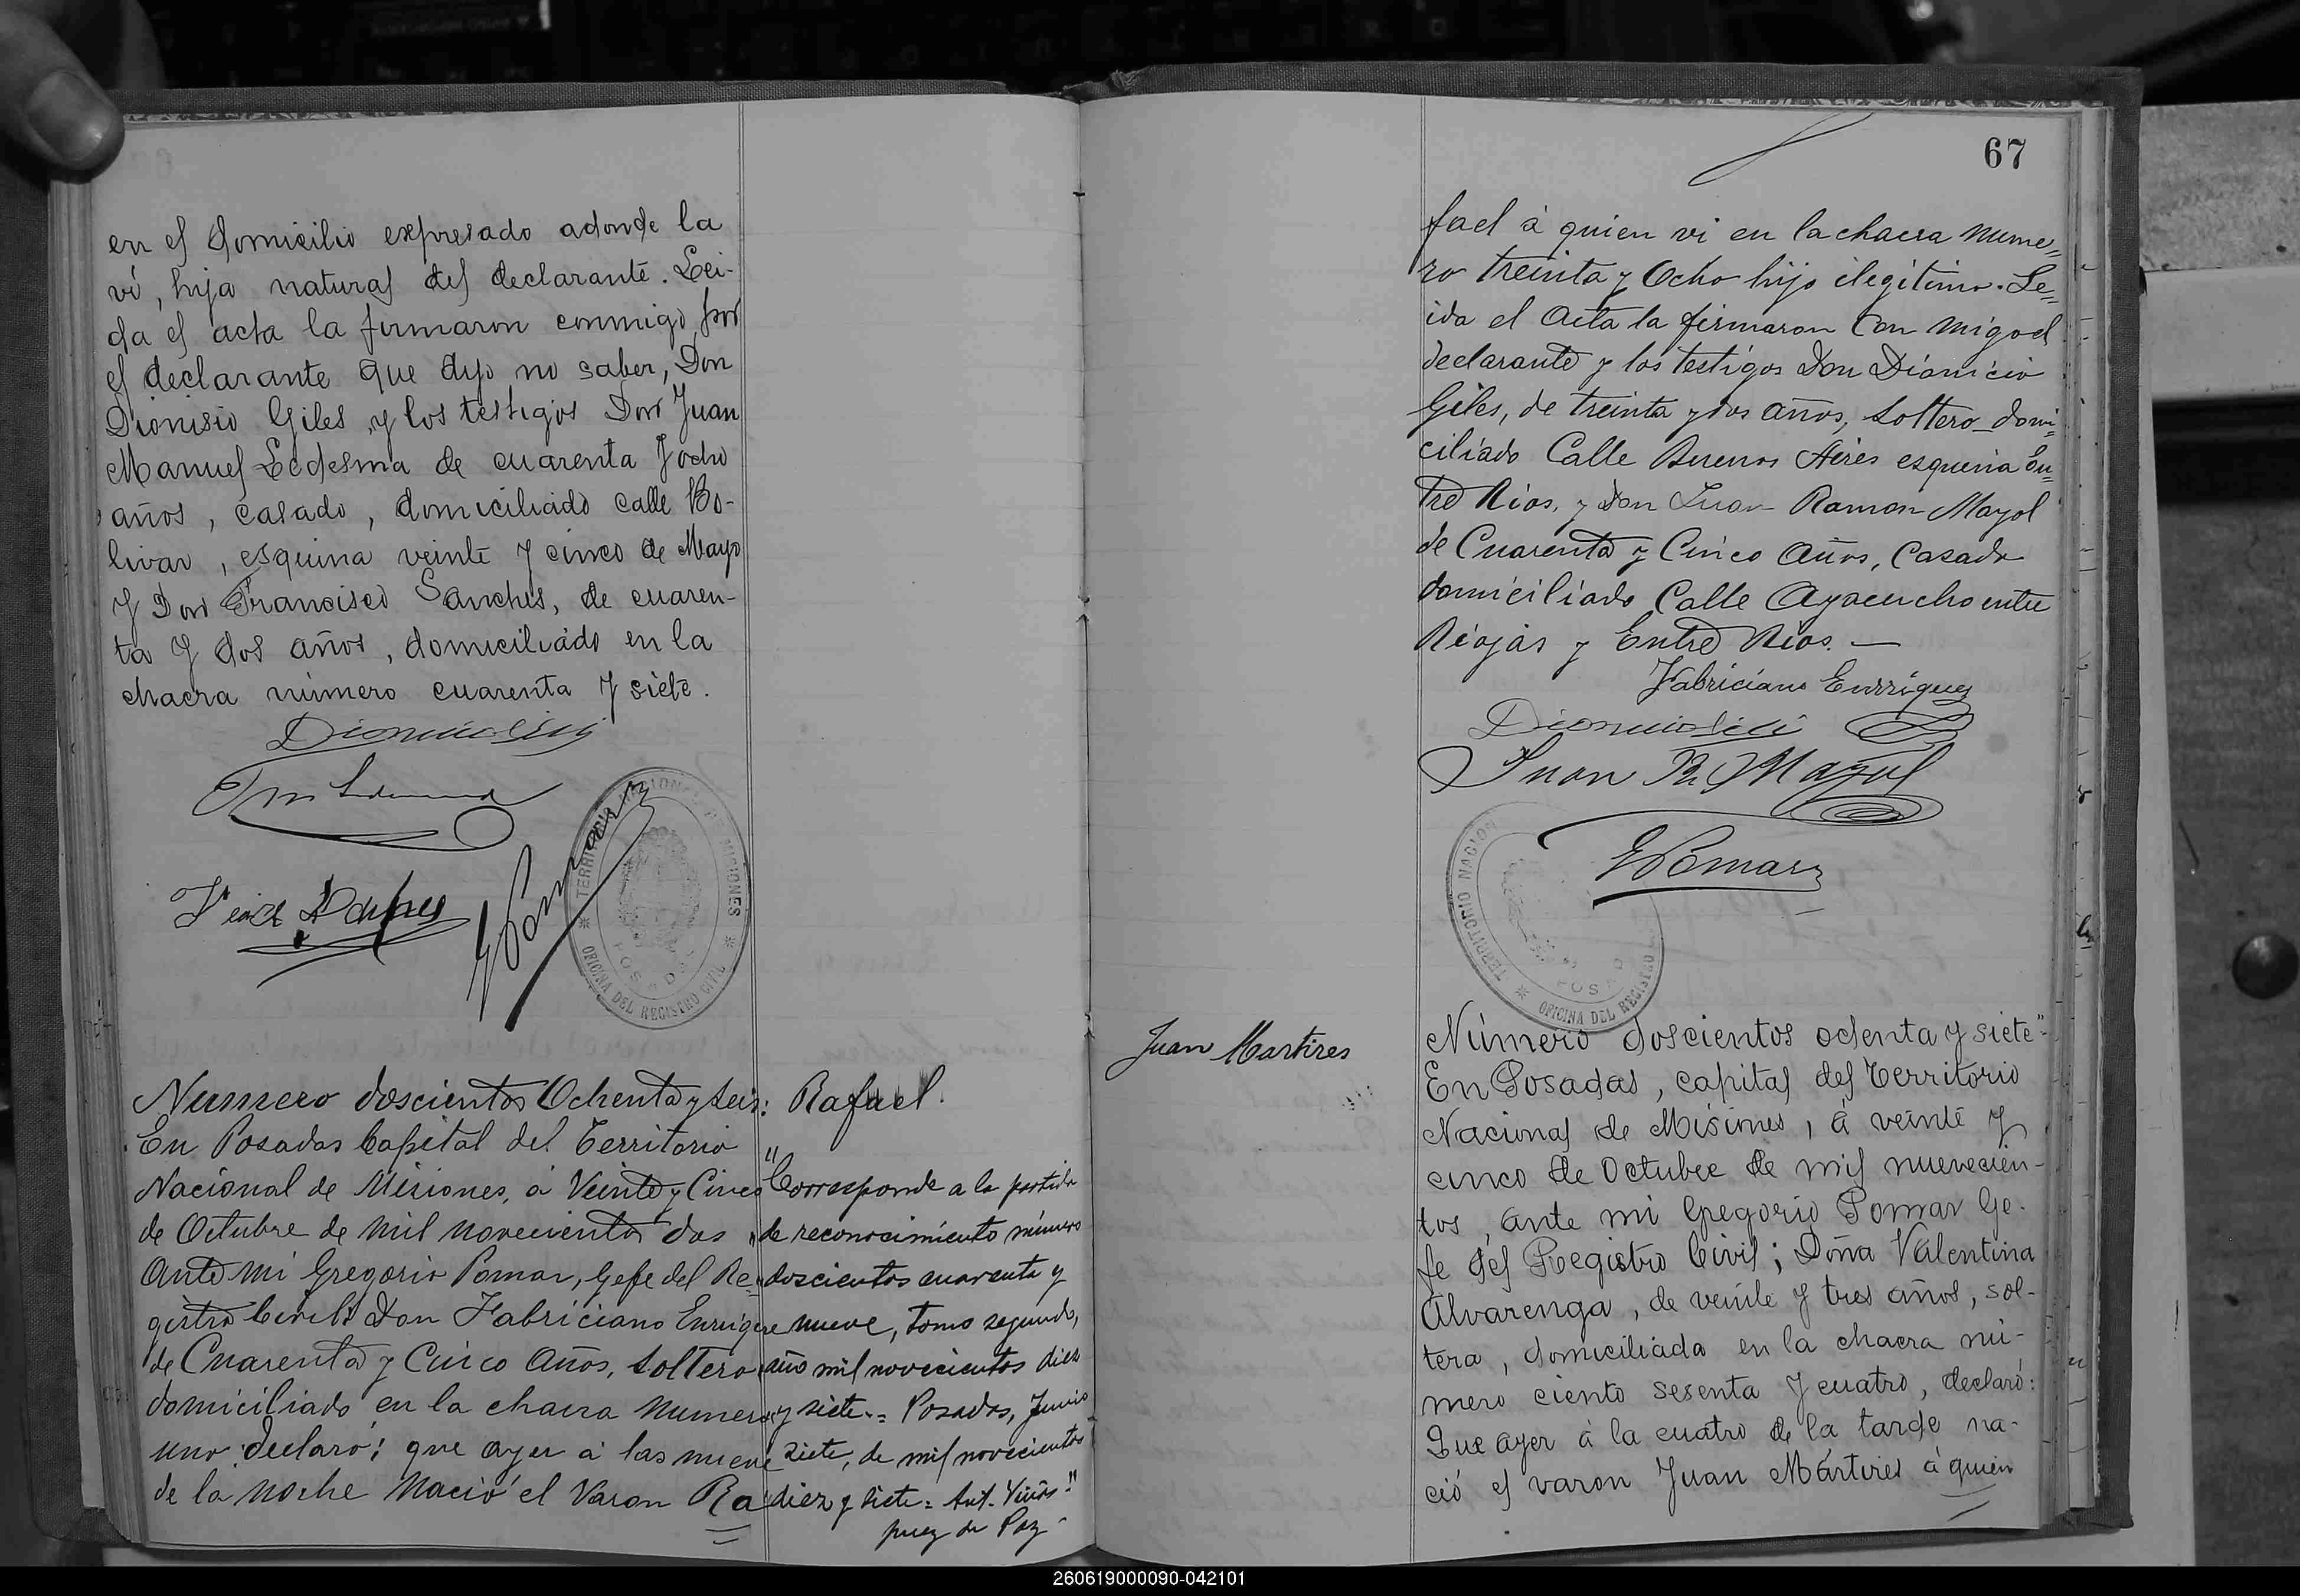 en el domicilio expresado adonde la
ví, hija natural del declarante. Lei-
da el acta la firmaron conmigo por
el declarante que dijo no saber, Don
Dionisio Giles, y los testigos Don Juan
Manuel Ledesma de cuarenta y ocho
años, casado, domiciliado calle Bo-
livar, esquina veinte y cinco de Mayo
y Don Francisco Sanches, de cuaren-
ta y dos años, domiciliado en la
chacra número cuarenta y siete.
TERRITORIO NACIONAL DE MISIONES
POSADAS
OFICINA DEL REGISTRO CIVIL
Numero doscientos Ochenta y seis:
En Posadas Capital del Territorio
Nacional de Misiones, á Veinte y Cinco
de Octubre de Mil novecientos dos
Ante mi Gregorio Pomar, Gefe del Re=
gistro Civil; Don Fabriciano Enrique
de Cuarenta y Cinco Años, Soltero
domiciliado en la chacra numero
uno declaró; que ayer á las nueve
de la noche Nació el Varon Ra
Rafael.
"Corresponde a la partida
"de reconocimiento número
doscientos cuarenta y
nueve, tomo segundo,
año mil novecientos diez
y siete.= Posadas, Junio
siete, de mil novecientos
diez y siete = Ant. Viñas"
juez de Paz
67
fael á quien vi en la chacra nume=
ro treinta y Ocho hijo ilegitimo. Le=
ida el Acta la firmaron Con migo el
declarante y los testigos Don Dionicio
Giles, de treinta y dos años, Soltero domi=
ciliado Calle Buenos Aires esquina En=
tre Rios, y Don Juan Ramon Mayol
de Cuarenta y Cinco Años, Casado
domiciliado Calle Ayacucho entre
Riojas y Entre Rios. —
Fabriciano Enrriquez
Juan R. Mayol
GPomar
TERRITORIO NACION
POSAD
OFICINA DEL REGISTRO
Juan Martires
Número doscientos ochenta y siete"
En Posadas, capital del Territorio
Nacional de Misiones, á veinte y
cinco de Octubre de mil novecien-
tos, ante mi Gregorio Pomar Ge-
fe del Registro Civil; Doña Valentina
Alvarenga, de veinte y tres años, sol-
tera, domiciliada en la chacra nú-
mero ciento sesenta y cuatro, declaró:
Que ayer á la cuatro de la tarde na-
ció el varon Juan Mártires á quien
260619000090-042101